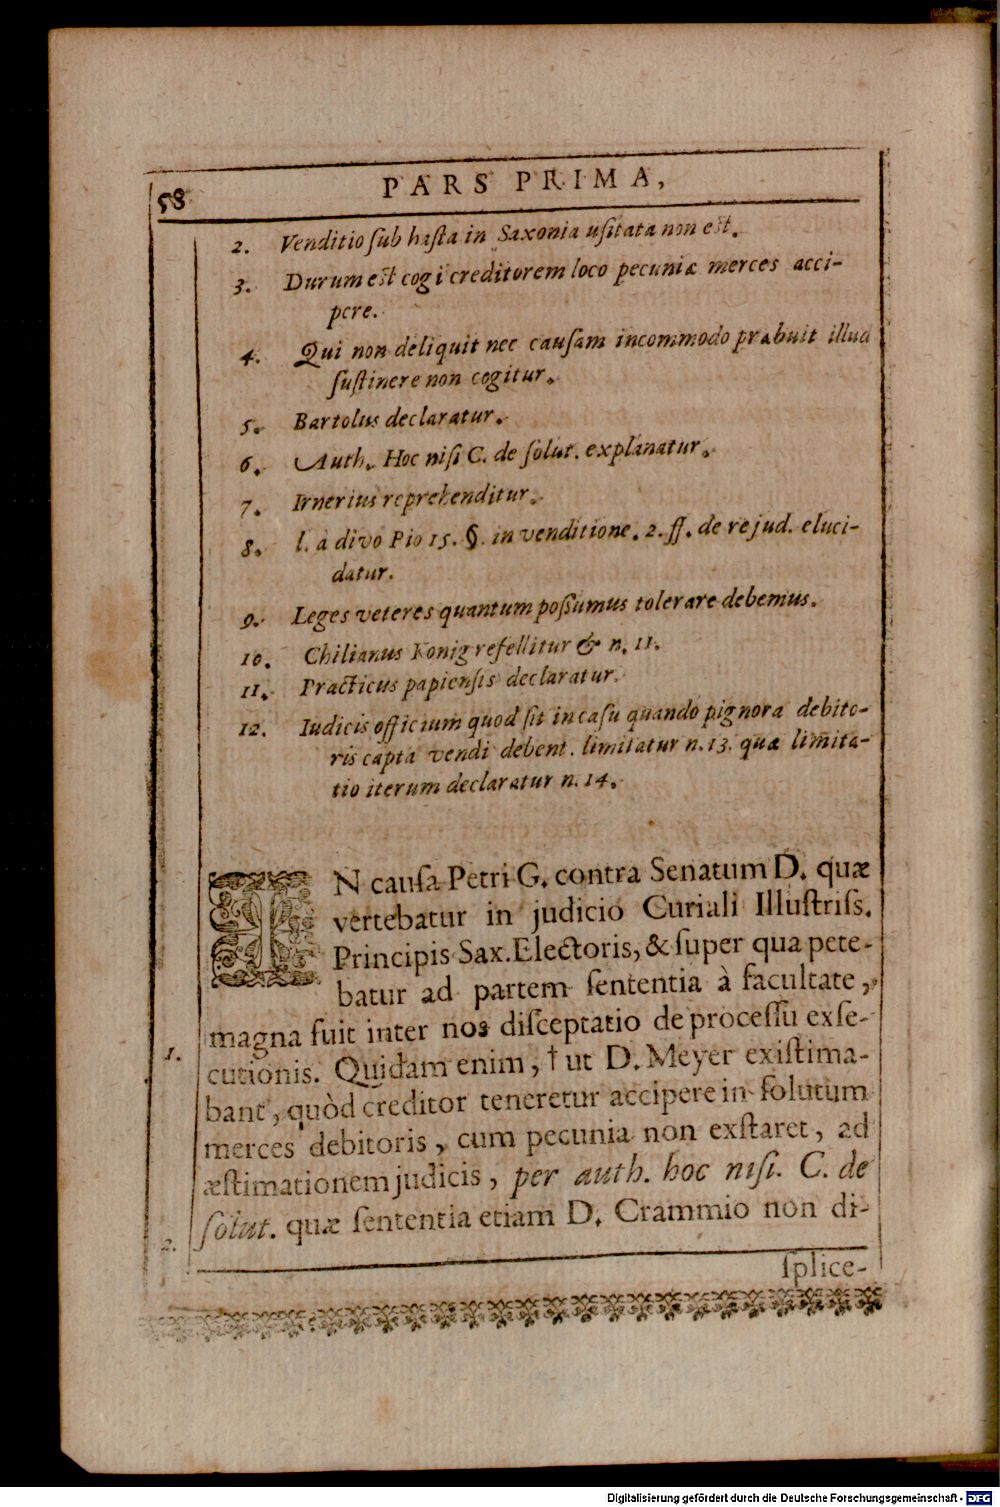 58
PARS PRIMA,
2. Venditio ſub haſta in Saxonia uſitata non eſt.
3. Durum eſt cogi creditorem loco pecuniæ merces acci-
pere.
4. Qui non deliquit nec cauſam incommodo præbuit illud
ſuſtinere non cogitur.
5. Bartolus declaratur.
6. Auth. Hoc niſi C. de ſolut. explanatur.
7. Irnerius reprehenditur.
8. l. à divo Pio 15. §. in venditione. 2. ff. de re jud. eluci-
datur.
9. Leges veteres quantum poſſumus tolerare debemus.
10. Chilianus Konig refellitur & n. 11.
11. Practicus papienſis declaratur.
12. Iudicis officium quod ſit in caſu quando pignora debito-
ris capta vendi debent. limitatur n. 13. quæ limita-
tio iterum declaratur n. 14.
IN cauſa Petri G. contra Senatum D. quæ
vertebatur in judicio Curiali Illuſtriſs.
Principis Sax. Electoris, & ſuper qua pete-
batur ad partem ſententia à facultate,
magna fuit inter nos diſceptatio de proceſſu exſe-
1.
cutionis. Quidam enim, † ut D. Meyer exiſtima-
bant, quòd creditor teneretur accipere in ſolutum
merces debitoris, cum pecunia non exſtaret, ad
æſtimationem judicis, per auth. hoc niſi. C. de
2.
ſolut. quæ ſententia etiam D. Crammio non di-
ſplice-
Digitalisierung gefördert durch die Deutsche Forschungsgemeinschaft - DFG